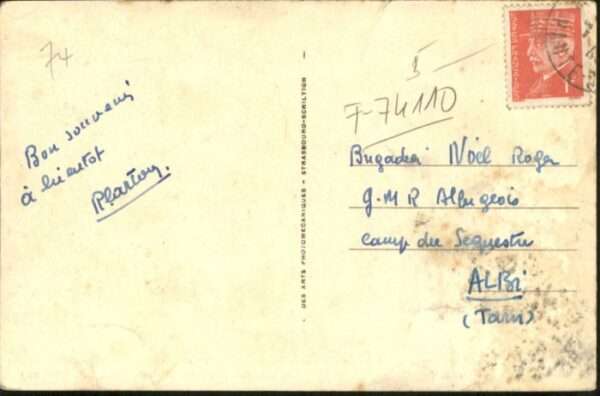 74
Bon souvenir
à bientôt
DES ARTS PHOTOMÉCANIQUES - STRASBOURG-SCHILTIGH
5-
F-74110
Brigadier Noël Roger
G.M.R Albigeois
Camp du Sequestre
ALBi
(Tarn)